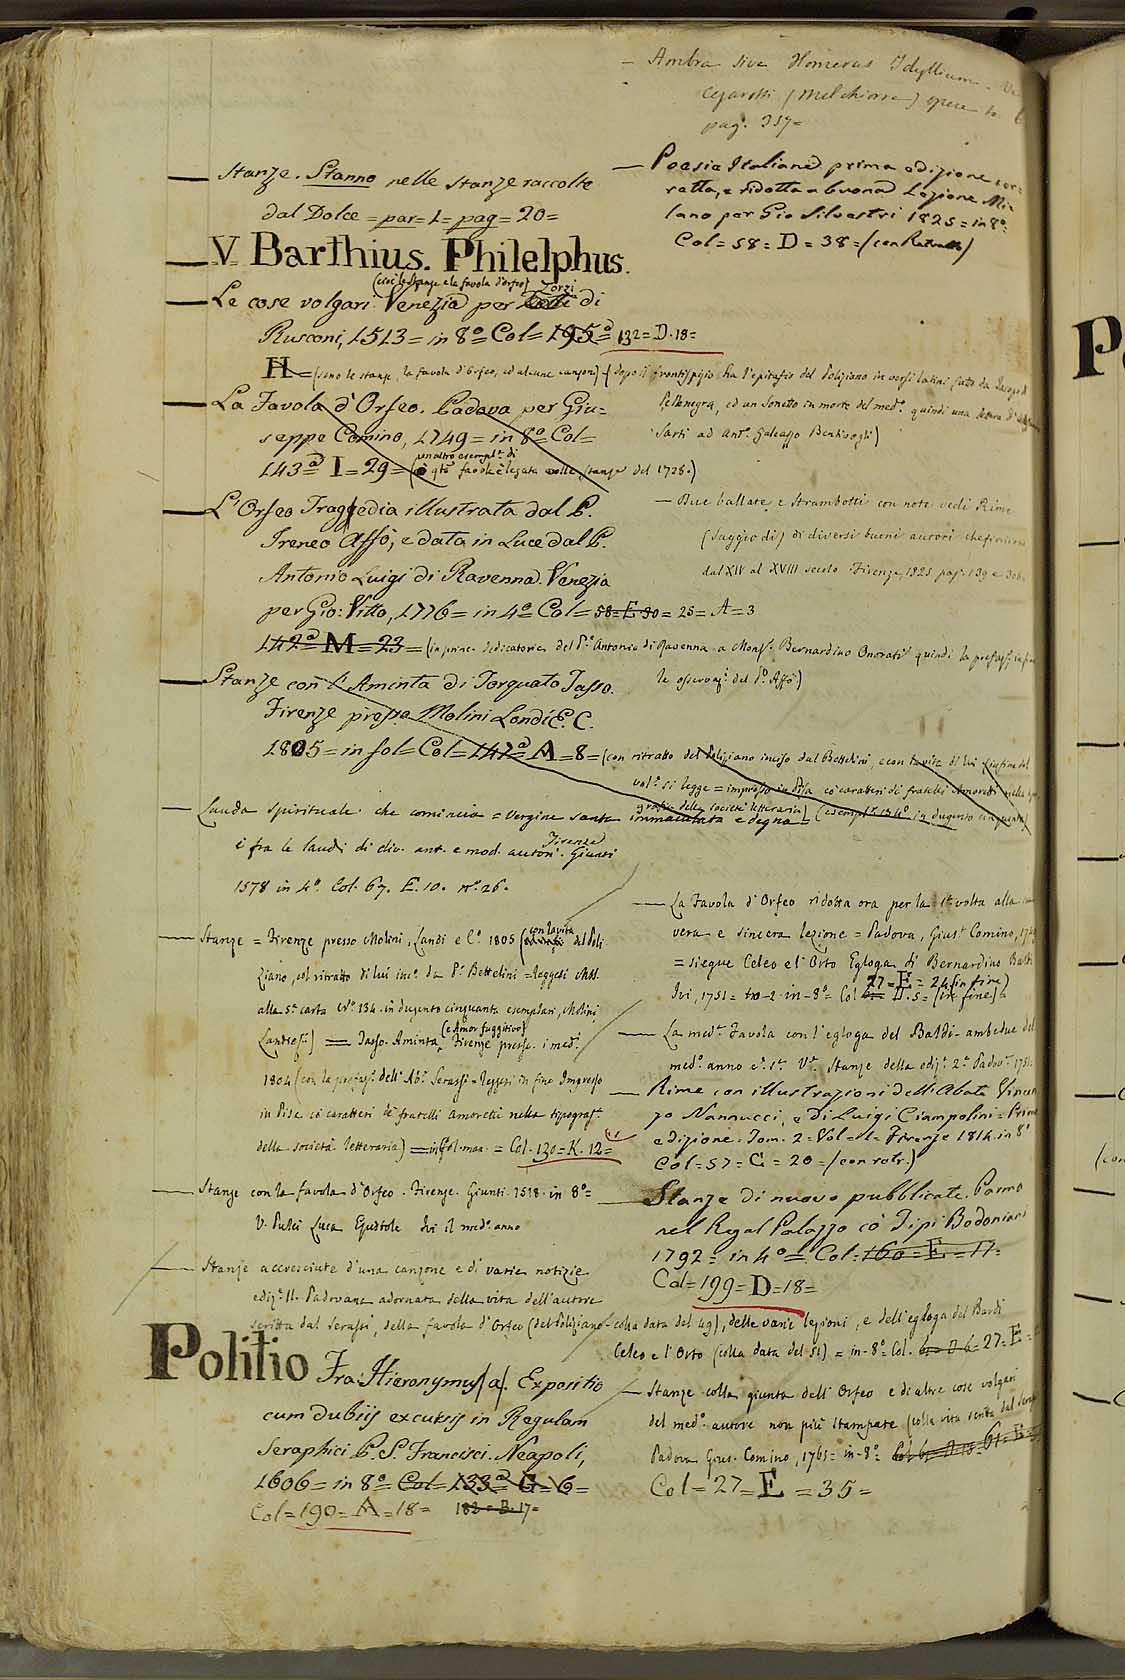 — Ambra sive Homerus Idyllium =
Cesarotti (Melchiorre) opere to. 
pag. 357=
— Poesie Italiane prima edizione cor=
retta, e ridotta a buona Lezione Mi=
lano per Gio Silvestri 1825 = in 8º=
Col = 58 = D = 38 = (con Ritratto)
— Stanze. Stanno nelle Stanze raccolte
dal Dolce = par = 1 = pag = 20 =
— V. Barthius. Philelphus.
(cioè le Stanze e la favola d'Orfeo) Zorzi
— Le cose volgari Venezia per di
Rusconi, 1513 = in 8º = Col = 195ª = 132 = D. 18 =
H = (sono le stanze, la favola d'Orfeo, ed alcune canzoni) (dopo il frontispizio ha l'epitafio del Poliziano in versi latini fatto da Jacopo
Pellenegra, ed un sonetto in morte del medº. quindi una
Sarti ad Antº. Galeazzo Bentivogli)
— La Favola d'Orfeo. Padova per Giu=
seppe Comino, 1749 = in 8º = Col =
un altro esempl.e di
143ª I = 29 = ( qta favola è legata colle stanze del 1728.)
— L'Orfeo Traggedia illustrata dal P.
Ireneo Affò, e data in Luce dal P.
Antonio Luigi di Ravenna. Venezia
per Gio: Vitto, 1776 = in 4º = Col = 58 = E 30 = 25 = A = 3
142ª M = 23 = (in princ. dedicatoria del P.e Antonio di Ravenna a Monsr. Bernardino Onorati quindi la prefaz.
le osservaz.i del P.e Affò)
— Due ballate, e Strambotti con note vedi Rime
(Saggio di) di diversi buoni autori che fiorirono
dal XIV al XVIII secolo. Firenze, 1825. pag. 139 e 306
— Stanze con l'Aminta di Torquato Tasso.
Firenze presso Molini Landi E. C.
1805 = in fol = Col = 147ª A = 8 = (con ritratto del Poliziano inciso dal Bettelini, e con la vita di lui in fine del
vol.e si legge = impresso in Pisa co' caratteri di fratelli Amoretti nella
grafia della società letteraria) (esempl.e 134º in dugento cinquanta)
— Lauda spirituale che comincia = Vergine santa immaculata e degna =
è fra le laudi di div. ant. e mod. autori. Firenze Giunti
1578 in 4º. Col. 67. E. 10. nº. 26.
— Stanze = Firenze presso Molini, Landi e Cº. 1805 (con la vita del Poli
ziano, col ritratto di lui inc.o da P.o Bettelini = leggesi
alla 5.a carta Nº. 134. in dugento cinquanta esemplari, Molini,
Landi e) = Tasso. Aminta (e Amor fuggitivo), Firenze presso i med.i
1804 (con la prefaz.e dell'Ab.e Serassi = leggesi in fine Impresso
in Pisa co' caratteri de' fratelli Amoretti nella tipograf.a
della società letteraria) = in fol. mas. = Col. 130 = K. 12 =
— Stanze con la favola d'Orfeo. Firenze. Giunti. 1518. in 8º =
V. Pulci Luca Epistole Ivi il med.o anno
— Stanze accresciute d'una canzone e di varie notizie
ediz.e II. Padovana adornata della vita dell'autore
scritta dal Serassi, della favola d'Orfeo (del Poliziano colla data del 49), delle varie lezioni, e dell'egloga del Bardi
Celeo e l'Orto (colla data del 51) = in-8º = Col. 6 = D. 6 = 27 = E =
— La Favola d'Orfeo ridotta ora per la 1.a volta alla
vera e sincera lezione = Padova, Gius.e Comino, 1749
= siegue Celeo e l'Orto Egloga di Bernardino Baldi
27 = E = 24 (in fine)
Ivi, 1751 = to - 2. in - 8º = Col D. 5 = (in fine)
— La med.a Favola con l'egloga del Baldi - ambedue del
med.o anno e 1.a V.a Stanze della ediz.e 2.a Padov.a 1751.
— Rime con illustrazioni dell'Abate Vincen
zo Nannucci, e di Luigi Ciampolini = Prima
edizione. Tom. 2 = Vol = 1 = Firenze 1814. in 8º
Col = 57 = C = 20 = (con ratr.)
— Stanze di nuovo pubblicate. Parma
nel Regal Palazzo co' Tipi Bodoniani
1792 = in 4º = Col = 160 = E = 17 =
Col = 199 = D = 18 =
— Stanze colla giunta dell'Orfeo e di altre cose volgari
del med.o autore non più stampate (colla vita scritta dal
Padova Gius. Comino, 1765 = in - 8º =
Col = 27 = E = 35 =
Politio Fra: Hieronymus/a/. Expositio
cum dubiis excursis in Regulam
Seraphici P. S. Francisci. Neapoli,
1606 = in 8º = Col = 133ª G = 6 =
Col = 190 = A = 18 = 182 = B. 17 =